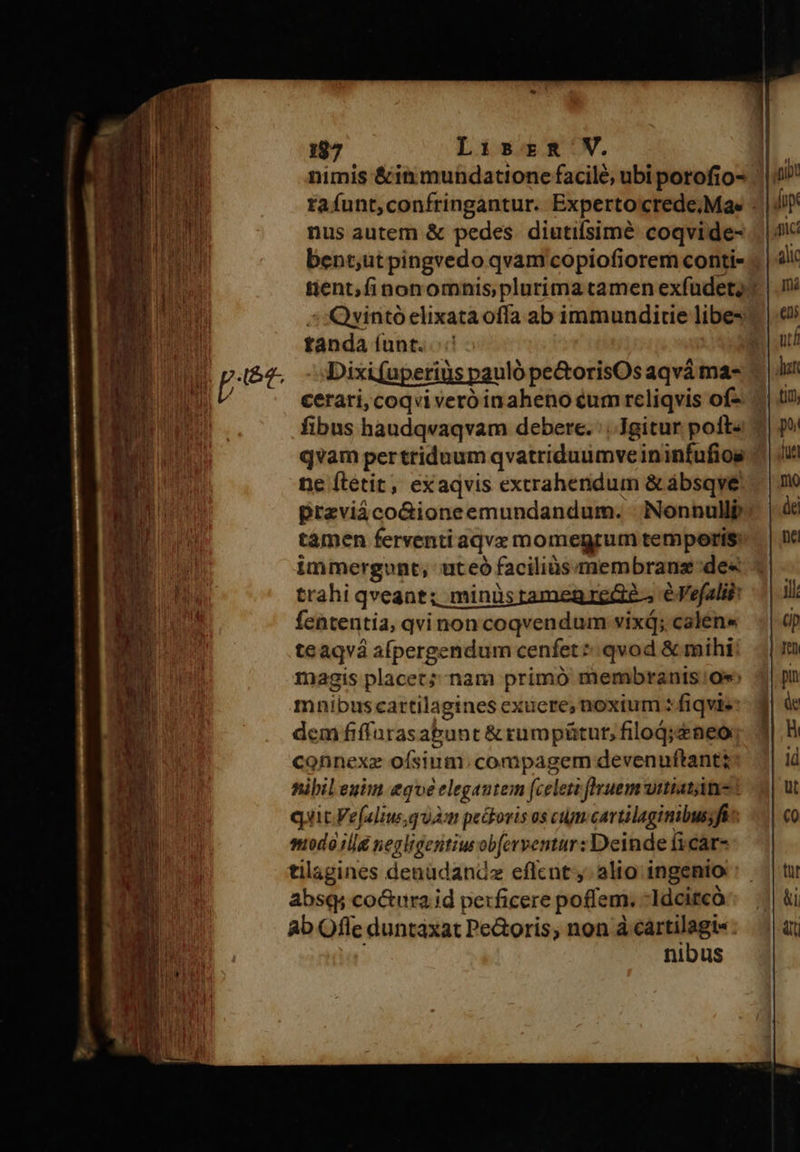 187 LIBER V.
nimis & in mundatione facilè, ubi porosio-
ra sunt, confringantur. Experto crede, Ma-
nus autem & pedes diutissimè coqvide-
bent, ut pingvedo qvam copiosiorem conti-
nent, si non omnis, plurima tamen exsudet.
Qvintò elixata ossa ab immunditie libe-
randa sunt.
p. 184. Dixi superiùs paulò pectoris Os aqvâ ma-
cerari, coqvi verò in aheno cum reliqvis os-
sibus haudqvaqvam debere. Igitur post-
qvam per triduum qvatriduumve in infusio-
ne stetit, ex aqvis extrahendum & absqve
præviâ coctione emundandum. Nonnulli
tamen ferventi aqvæ momentum temporis
immergunt, ut eò faciliùs membranæ de-
trahi qveant; minùs tamen rectè, è Vesalii
sententia, qvi non coqvendum vixq́; calen-
te aqvâ aspergendum censet: qvod & mihi
magis placet; nam primò membranis o-
mnibus cartilagines exuere, noxium: siqvi-
dem fissuras abunt & rumpũtur, filoq́; æneo
connexæ ossium compagem devenustant:
nihil enim æqvè elegantem sceleti struem vitiat, in-
qvit Vesalius, qvàm pectoris os cùm cartilaginibus, si
modo illæ negligentius observentur: Deinde si car-
tilagines denudandæ essent, alio ingenio
absq; coctura id perficere possem. Idcircò
ab Osse duntaxat Pectoris, non à cartilagi-
nibus